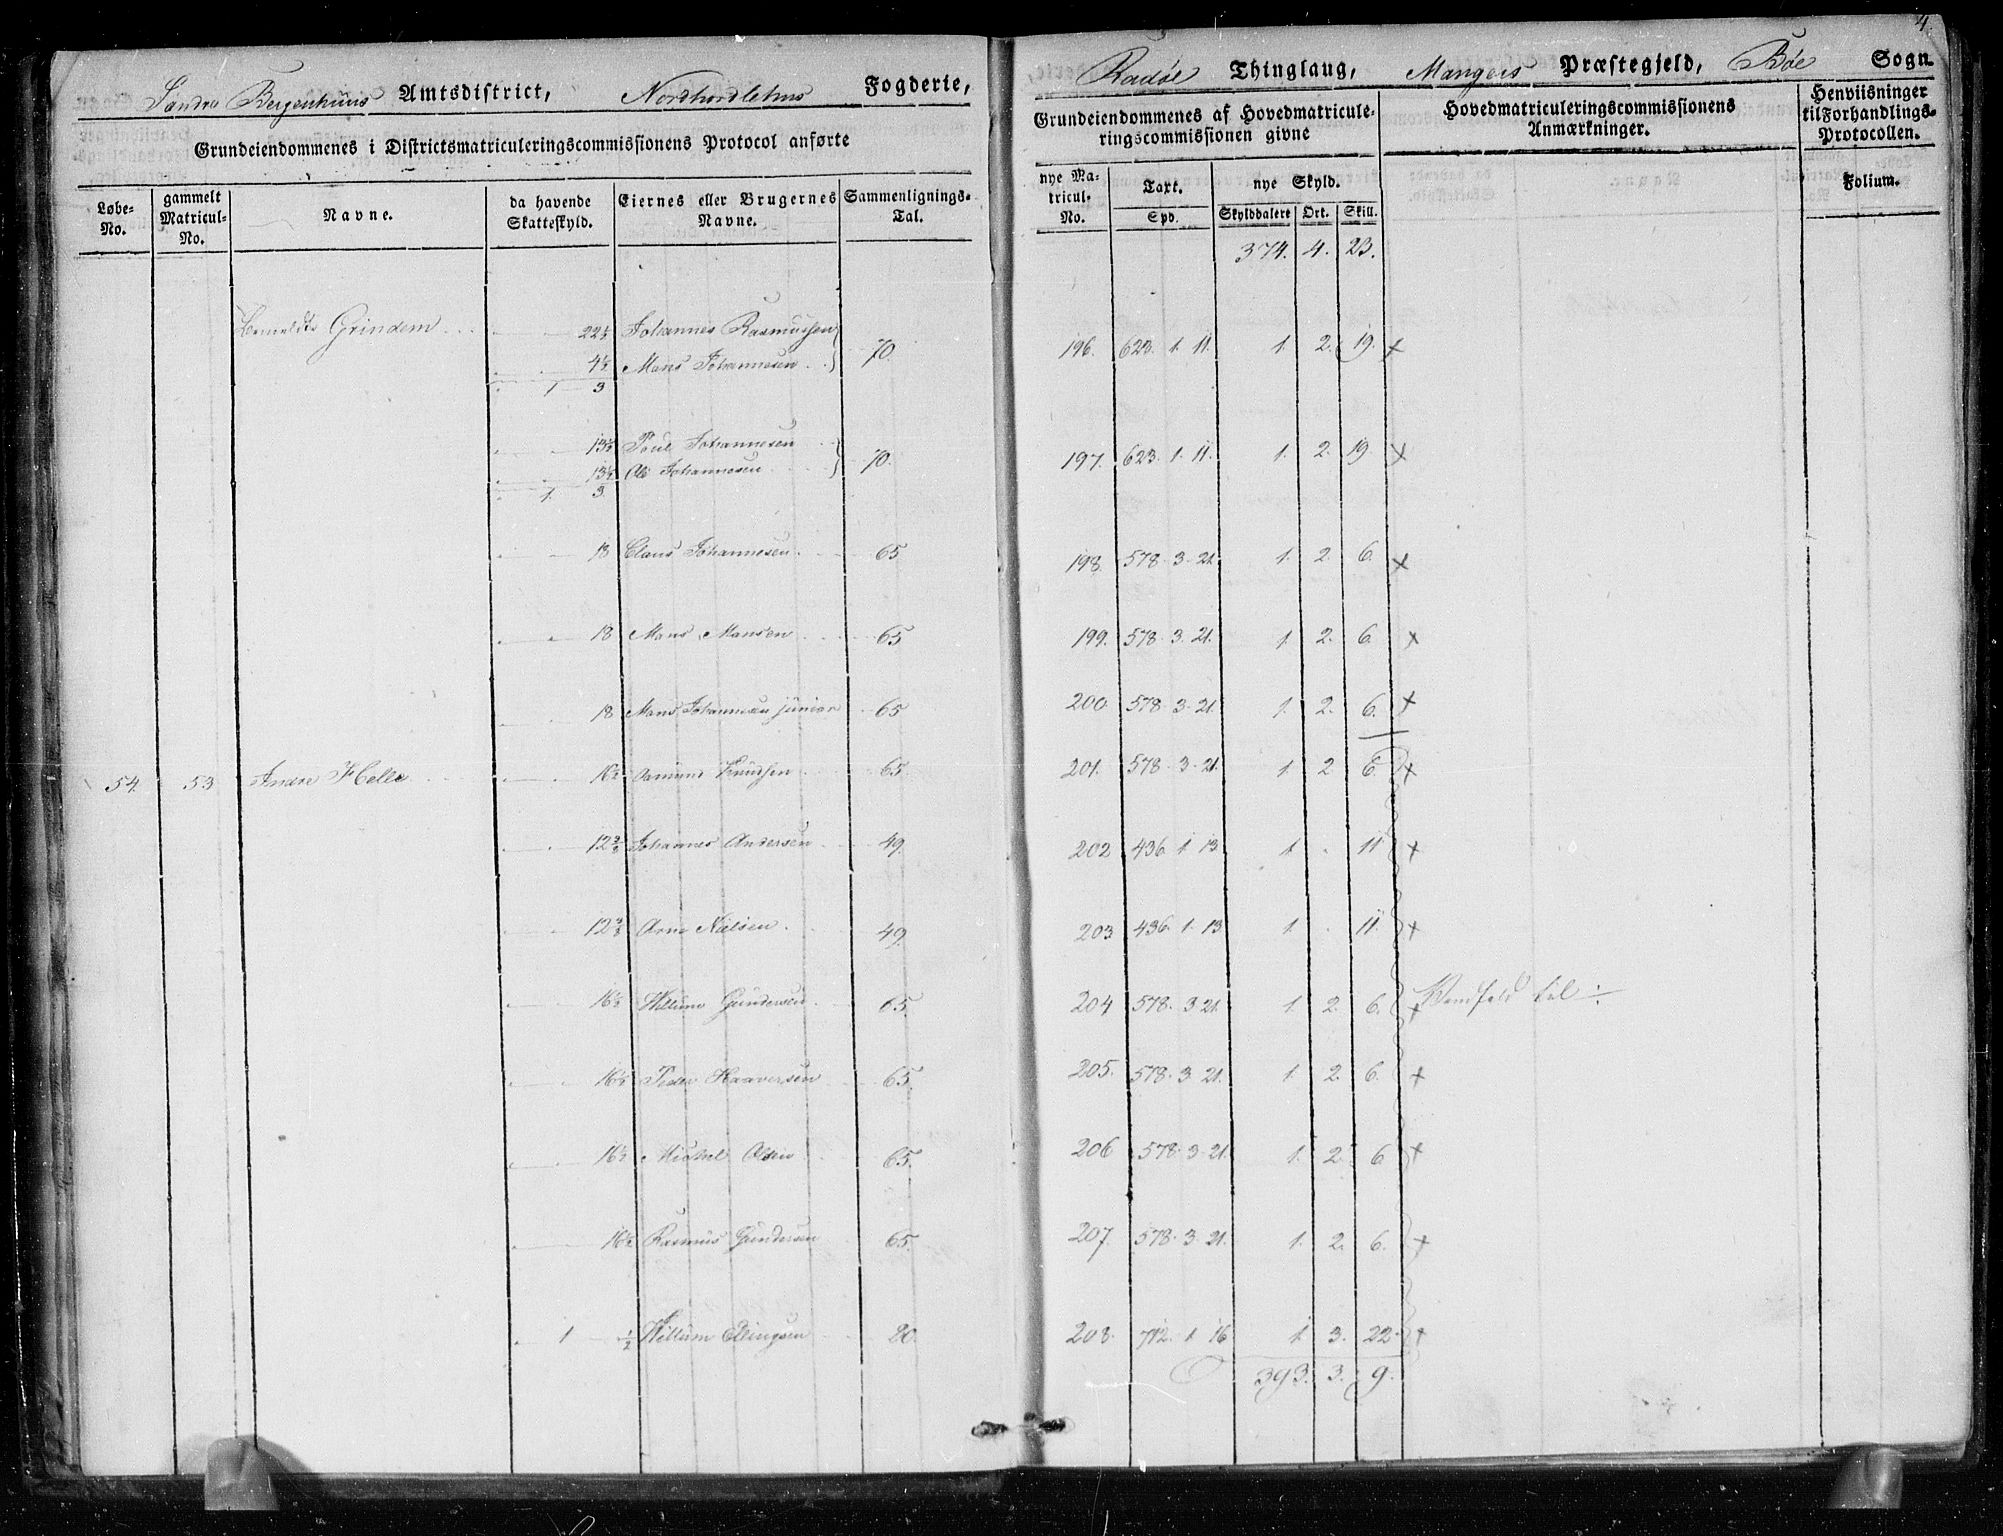 4.
Søndre Bergenhuus Amtsdistrict, Nordhordlehns Fogderie,
Radøe Thinglaug, Mangers Præstegjeld, Bøe Sogn.
Grundeiendommenes i Districtsmatriculeringscommissionens Protocol anførte
Grundeiendommenes af Hovedmatricule-
ringscommissionen givne
Hovedmatriculeringscommissionens
Anmærkninger.
Henviisninger
til Forhandlings-
Protocollen.
Løbe-
No.
gammelt
Matricul-
No.
Navne.
da havende
Skatteskyld.
Eiernes eller Brugernes
Navne.
Sammenlignings-
Tal.
nye Ma-
tricul-
No.
Taxt.
Spd.
nye Skyld.
Skylddalere Ort. Skill.
Folium.
374. 4. 23.
Bemeldte Grindem 22½ Johannes Rasmussen
4½ Mans Johannesen 70. 196. 623. 1. 11. 1. 2. 19. +
1 3
13½ Poul Johannesen
13½ Ole Johannesen 70. 197. 623. 1. 11. 1. 2. 19. +
1. 3
18 Claus Johannesen. 65 198. 578. 3. 21. 1. 2. 6. +
18 Mans Mansen 65 199. 578. 3. 21. 1. 2. 6. +
18 Mans Johannesen junior 65 200. 578. 3. 21. 1. 2. 6. +
54. 53 Andre Helle 16½ Aamund Knudsen 65. 201. 578. 3. 21. 1. 2 6. +
12⅜ Johannes Andersen 49. 202 436. 1. 13 1. . 11 +
12⅜ Arne Nielsen. 49. 203 436. 1. 13 1. . 11. +
16½ Willum Gundersen. 65. 204 578. 3 21. 1. 2. 6. +
til ÷
16½ Peder Haaversen 65. 205. 578. 3 21. 1. 2. 6. +
16½ Michel Olsen 65. 206 578. 3 21. 1. 2. 6 +
16½ Rasmus Gundersen 65. 207 578. 3 21. 1. 2. 6. +
1 ½ Willum Ellingsen 80. 208. 712. 1 16 1. 3. 22. +
393. 3. 9.